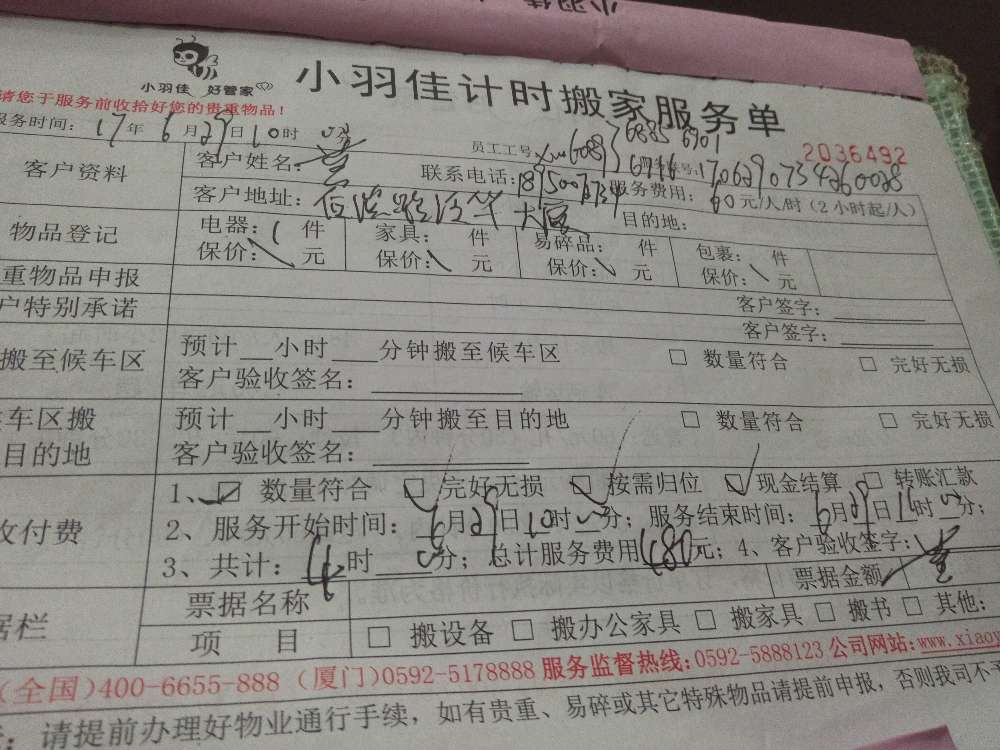 小羽佳 好管家
小羽佳计时搬家服务单
请您于服务前收拾好您的贵重物品！
服务时间：17年6月29日10时0分
员工工号：
2036492
客户资料
客户姓名：
联系电话：
服务费用：60元/人/时（2小时起/人）
客户地址：
大厦
目的地：
物品登记
电器：1件 家具： 件 易碎品： 件 包裹： 件
保价：\元 保价：\元 保价：\元 保价：\元
重物品申报
客户签字：
户特别承诺
客户签字：
搬至候车区
预计__小时___分钟搬至候车区 □ 数量符合 □ 完好无损
客户验收签名：
车区搬
目的地
预计__小时___分钟搬至目的地 □ 数量符合 □ 完好无损
客户验收签名：
收付费
1、☑ 数量符合 ☑ 完好无损 ☑ 按需归位 ☑ 现金结算 □ 转账汇款
2、服务开始时间：6月29日10时0分；服务结束时间：6月29日1时0分；
3、共计：4时0分；总计服务费用480元；4、客户验收签字：
据栏
票据名称
票据金额
项 目
□ 搬设备 □ 搬办公家具 □ 搬家具 □ 搬书 □ 其他：
(全国)400-6655-888 (厦门)0592-5178888 服务监督热线：0592-5888123 公司网站：www.xiao
：请提前办理好物业通行手续，如有贵重、易碎或其它特殊物品请提前申报，否则我司不